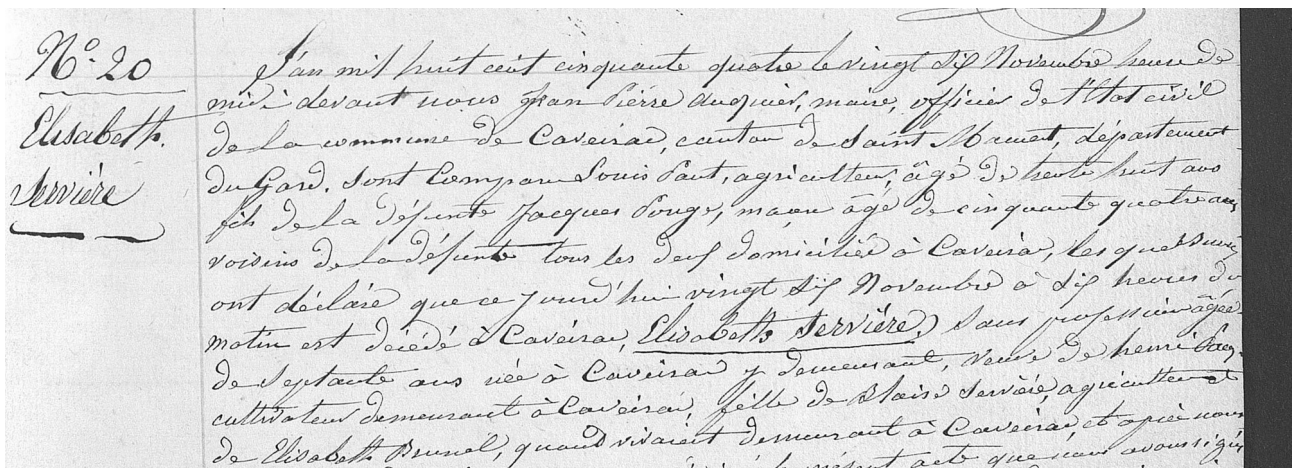 N.º 20
Elisabeth.
Servière
L'an mil huit cent cinquante quatre le vingt six Novembre heure de
midi devant nous Jean Pierre auquier, maire, officier de l'Etat civil
de la commune de Caveirac, canton de Saint Mamert, département
du Gard. Sont Comparu Louis Paut, agriculteur, âgé de trente huit ans
fils de la défunte Jacques Pouge, maçon âgé de cinquante quatre ans
voisins de la défunte tous les deux domiciliée à Caveirac, les quels
ont déclaré que ce jourd'hui vingt six Novembre à six heures du
matin est décédé à Caveirac, Elisabeth Servière, sans profession âgée
de septante ans née à Caveirac y demeurant, veuve de henri
cultivateur demeurant à Caveirac, fille de Blaise Servière, agriculteur et
de Elisabeth Brunel, quand vivaient demeurant à Caveirac, et après nous
le présent acte que nous avons signé